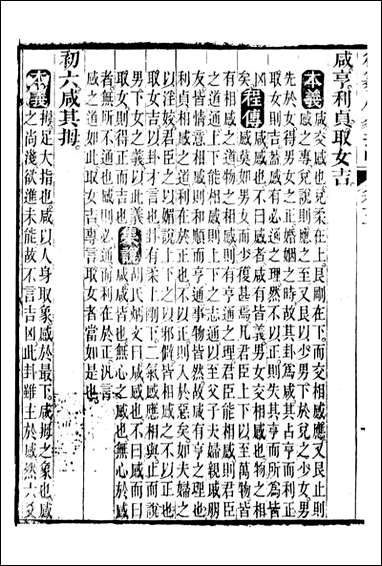 咸亨利貞取女吉
本義 咸交感也兌柔在上艮剛在下而交相感應又艮止則
感之專兌說則應之至又艮以少男下於兌之少女男
先於女得男女之正婚姻之時故其卦為咸其占亨而利正
取女則吉蓋感有必通之理然不以正則失其亨而所為皆
凶矣 程傳 咸感也不曰感者咸有皆義男女交相感也物之相
感莫如男女而少復甚焉凡君臣上下以至萬物皆
有相感之道物之相感則有亨通之理君臣能相感則君臣
之道通上下能相感則上下之志通以至父子夫婦親戚朋
友皆情意相感則和順而亨通事物皆然故咸有亨之理也
利貞相感之道利在於正也不以正則入於惡矣如夫婦之
以淫姣君臣之以媚說上下之以邪僻皆相感之不以正也
取女吉以卦才言也卦有柔上剛下二氣感應相與止而說
男下女之義以此義
取女則得正而吉也 集說 胡氏炳文曰咸感也不曰感而曰
咸咸皆也無心之感也無心於感
者無所不通也感則必通而利在於正汎言
感之道如此取女吉專言取女者當如是也
初六咸其拇
本義 拇足大指也咸以人身取象感於最下咸拇之象也感
之尚淺欲進未能故不言吉凶此卦雖主於感然六爻